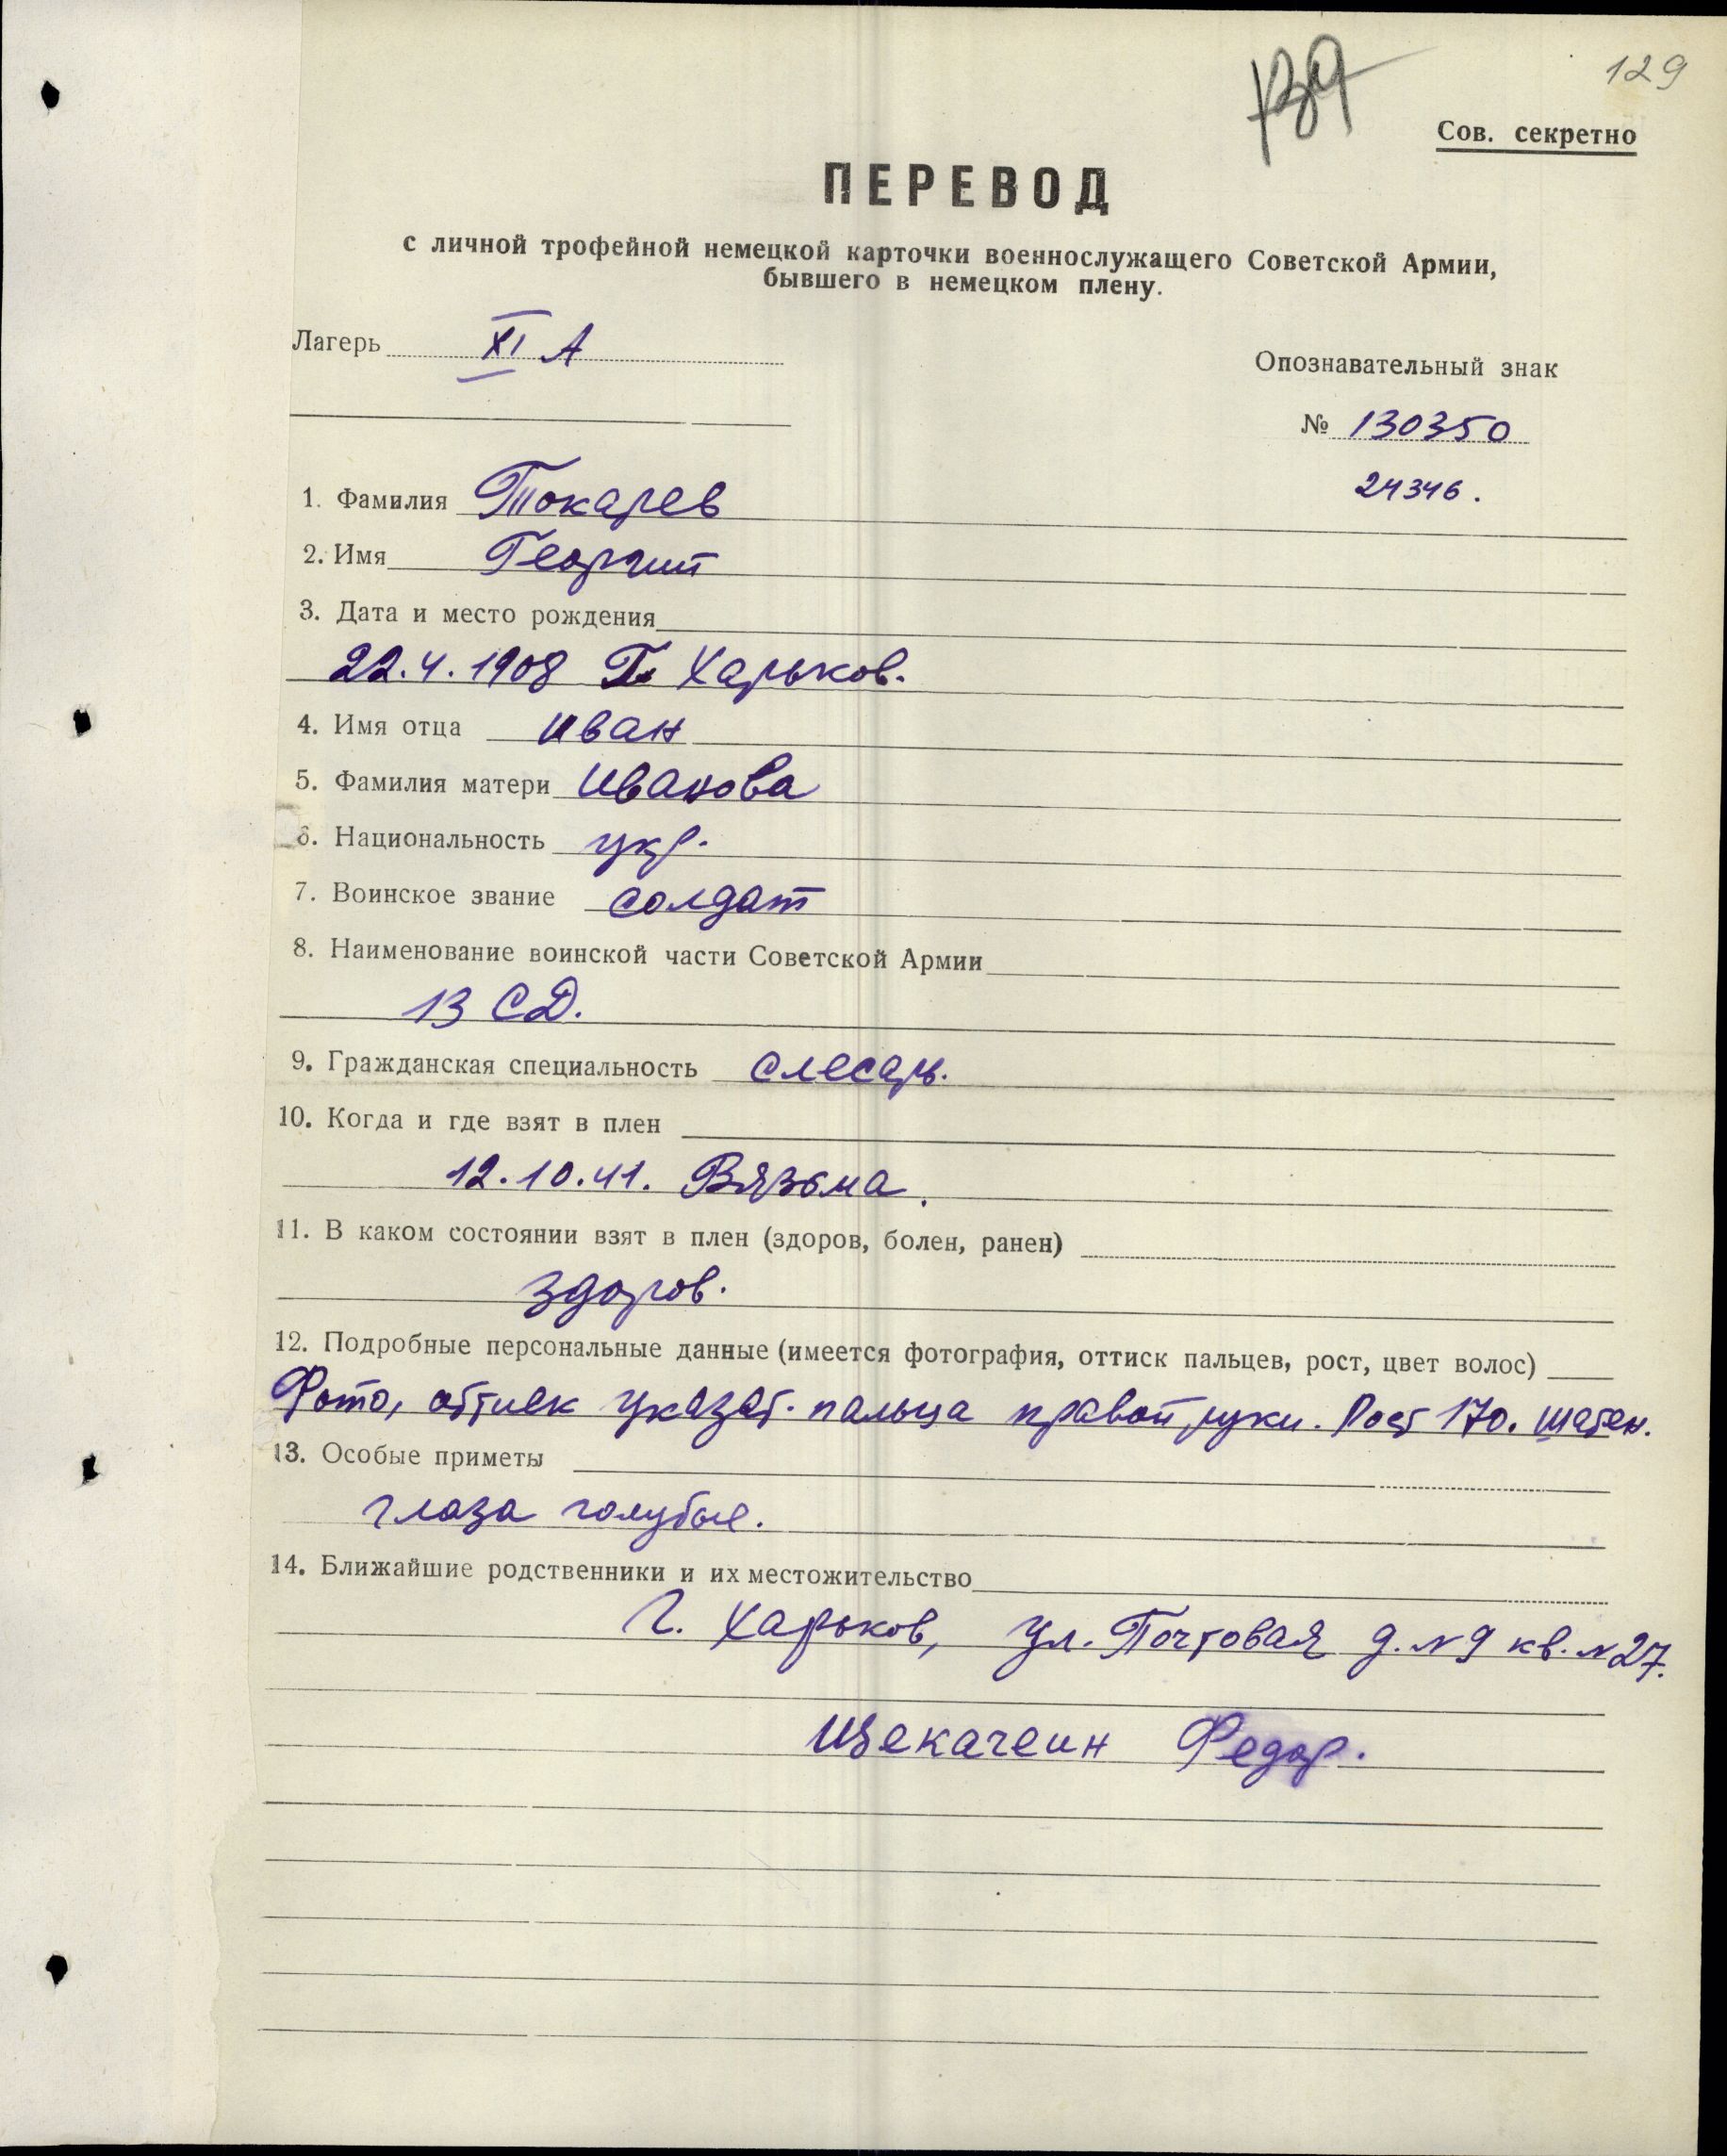 129
139
Сов. секретно
ПЕРЕВОД
с личной трофейной немецкой карточки военнослужащего Советской Армии,
бывшего в немецком плену.
Лагерь XI А
Опознавательный знак
№ 130350
24346.
1. Фамилия Токарев
2. Имя Георгий
3. Дата и место рождения
22.4.1908 г. Харьков.
4. Имя отца Иван
5. Фамилия матери Иванова
6. Национальность укр.
7. Воинское звание солдат
8. Наименование воинской части Советской Армии
13 СД.
9. Гражданская специальность слесарь.
10. Когда и где взят в плен
12.10.41. Вязьма.
11. В каком состоянии взят в плен (здоров, болен, ранен)
здоров.
12. Подробные персональные данные (имеется фотография, оттиск пальцев, рост, цвет волос)
Фото, оттиск указат. пальца правой руки. Рост 170. шатен.
13. Особые приметы
глаза голубые.
14. Ближайшие родственники и их местожительство
г. Харьков, ул. Почтовая д. N 9 кв. N 27.
Федор.